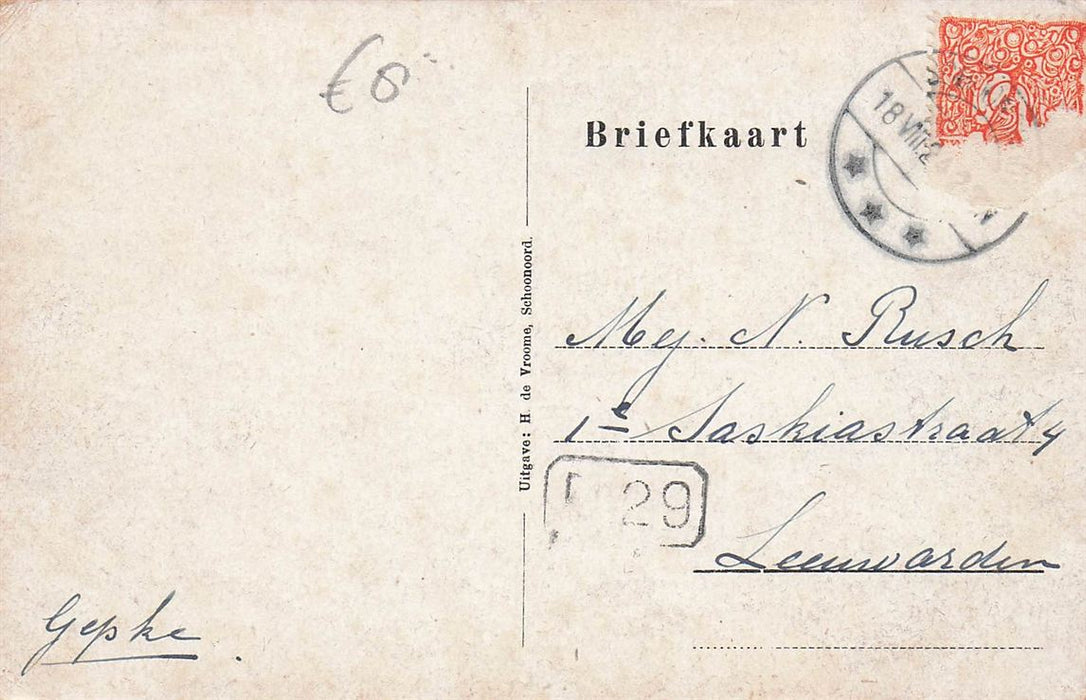 €6
Briefkaart
18 VIII
Uitgave: H. de Vroome, Schoonoord.
Mej. N. Rusch
1e Saskiastraat 4
29
Leeuwarden
Gepke